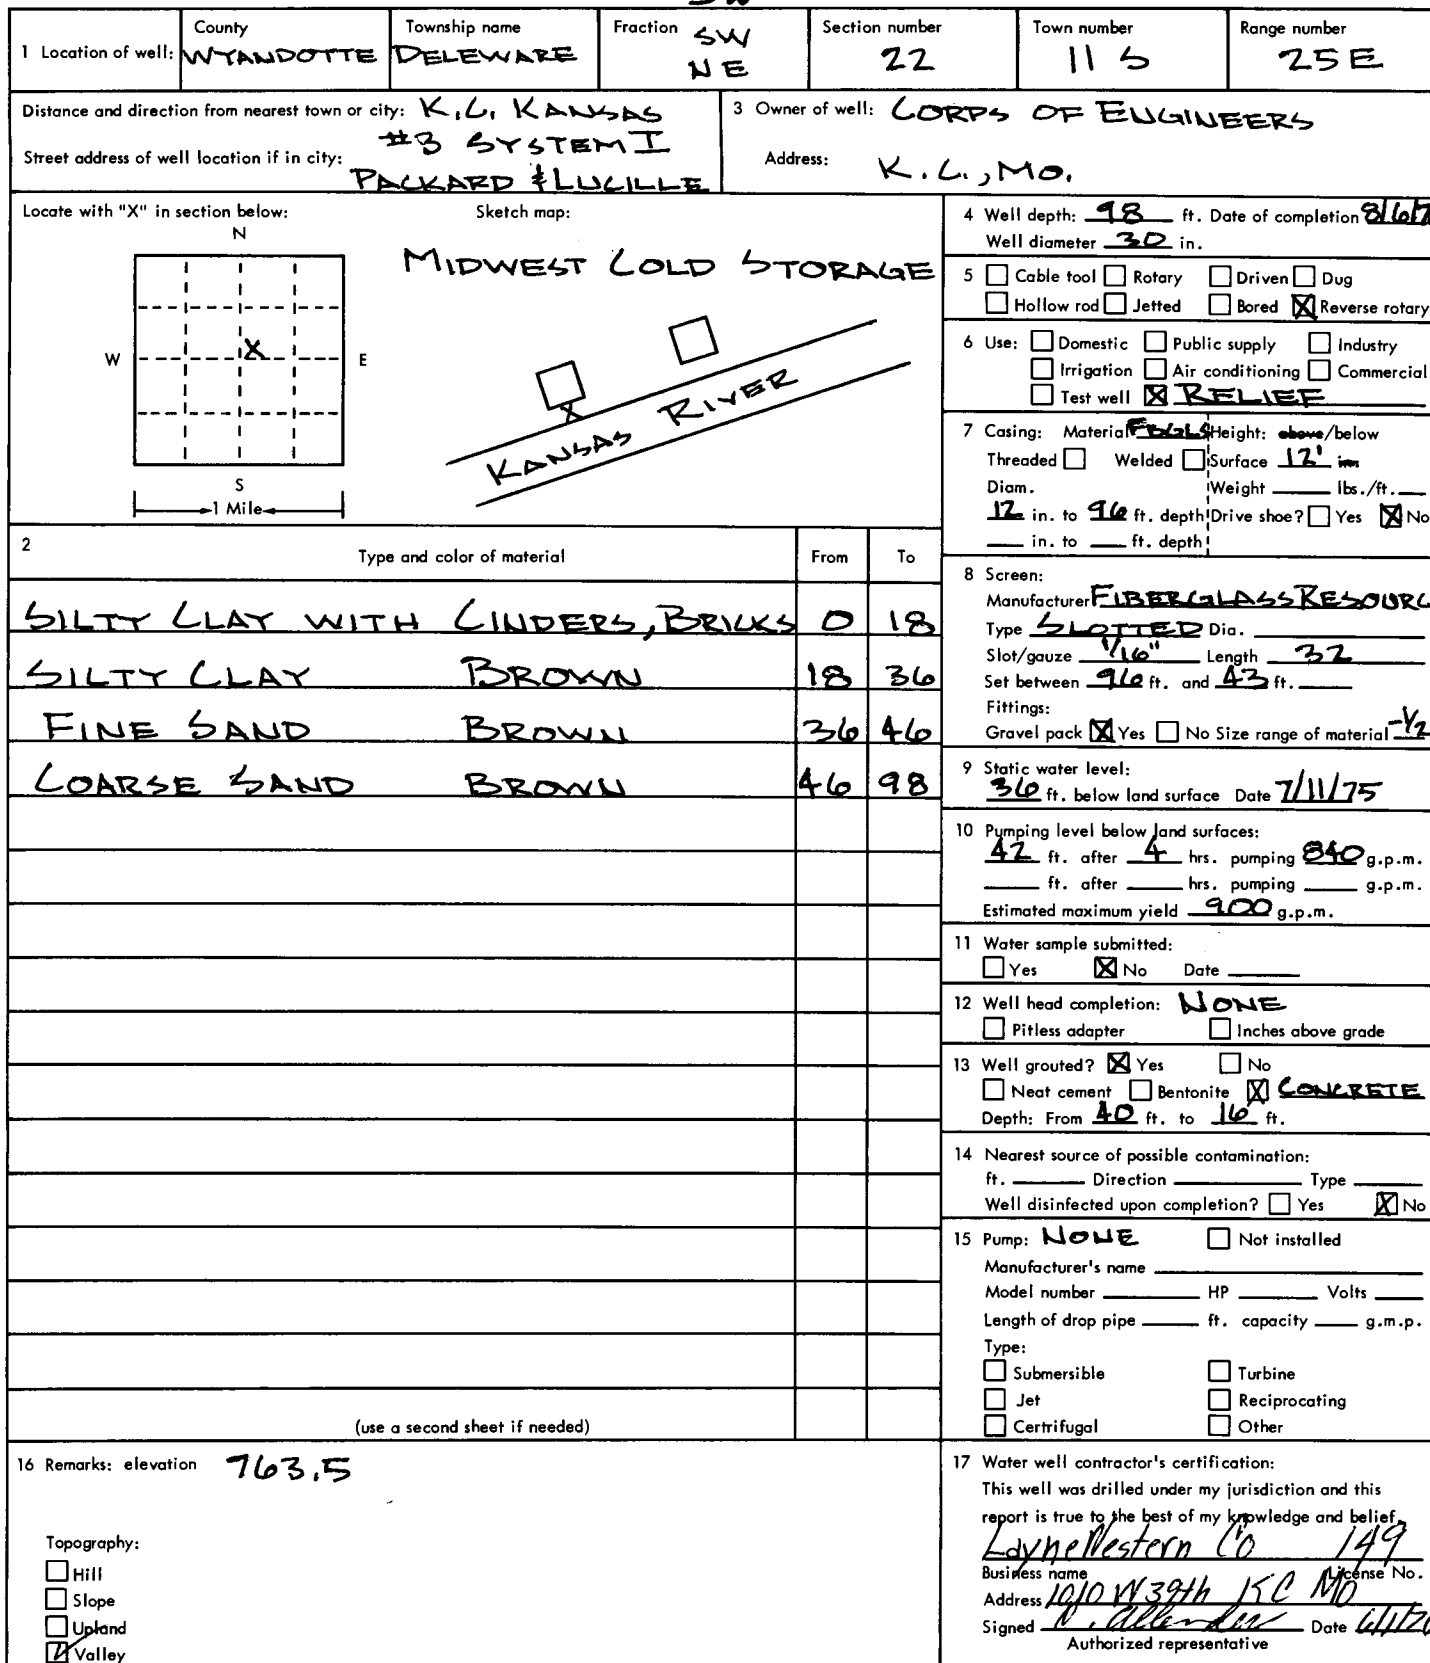 SW
1 Location of well:
County
WYANDOTTE
Township name
DELEWARE
Fraction
SW
NE
Section number
22
Town number
11 S
Range number
25E
Distance and direction from nearest town or city: K.C. KANSAS
#3 SYSTEM I
Street address of well location if in city:
PACKARD & LUCILLE
3 Owner of well: CORPS OF ENGINEERS
Address: K.C., MO.
Locate with "X" in section below:
N
W
X
E
S
1 Mile
Sketch map:
MIDWEST COLD STORAGE
X
KANSAS RIVER
2
Type and color of material From To
SILTY CLAY WITH CINDERS, BRICKS 0 18
SILTY CLAY BROWN 18 36
FINE SAND BROWN 36 46
COARSE SAND BROWN 46 98
(use a second sheet if needed)
4 Well depth: 98 ft. Date of completion 8/6/7
Well diameter 30 in.
5 Cable tool Rotary Driven Dug
Hollow rod Jetted Bored X Reverse rotary
6 Use: Domestic Public supply Industry
Irrigation Air conditioning Commercial
Test well X RELIEF
7 Casing: Material FBGLS Height: above/below
Threaded Welded Surface 12' in
Diam. Weight lbs./ft.
12 in. to 96 ft. depth Drive shoe? Yes X No
in. to ft. depth
8 Screen:
Manufacturer FIBERGLASS RESOURC
Type SLOTTED Dia.
Slot/gauze 1/16" Length 32
Set between 96 ft. and 43 ft.
Fittings:
Gravel pack X Yes No Size range of material -1/2
9 Static water level:
36 ft. below land surface Date 7/11/75
10 Pumping level below land surfaces:
42 ft. after 4 hrs. pumping 840 g.p.m.
ft. after hrs. pumping g.p.m.
Estimated maximum yield 900 g.p.m.
11 Water sample submitted:
Yes X No Date
12 Well head completion: NONE
Pitless adapter Inches above grade
13 Well grouted? X Yes No
Neat cement Bentonite X CONCRETE
Depth: From 40 ft. to 16 ft.
14 Nearest source of possible contamination:
ft. Direction Type
Well disinfected upon completion? Yes X No
15 Pump: NONE Not installed
Manufacturer's name
Model number HP Volts
Length of drop pipe ft. capacity g.m.p.
Type:
Submersible Turbine
Jet Reciprocating
Certrifugal Other
16 Remarks: elevation 763.5
Topography:
Hill
Slope
Upland
Valley
17 Water well contractor's certification:
This well was drilled under my jurisdiction and this
report is true to the best of my knowledge and belief.
Layne Western Co 149
Business name License No.
Address 1010 W 39th KC MO
Signed Date
Authorized representative